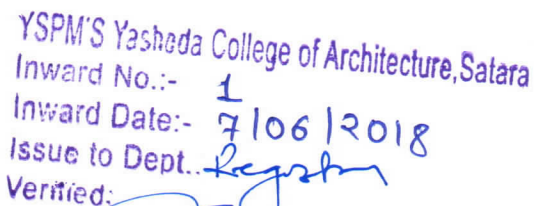 YSPM'S Yashoda College of Architecture, Satara
Inward No.:- 1
Inward Date:- 7/06/2018
Issue to Dept.. Registrar
Verified: